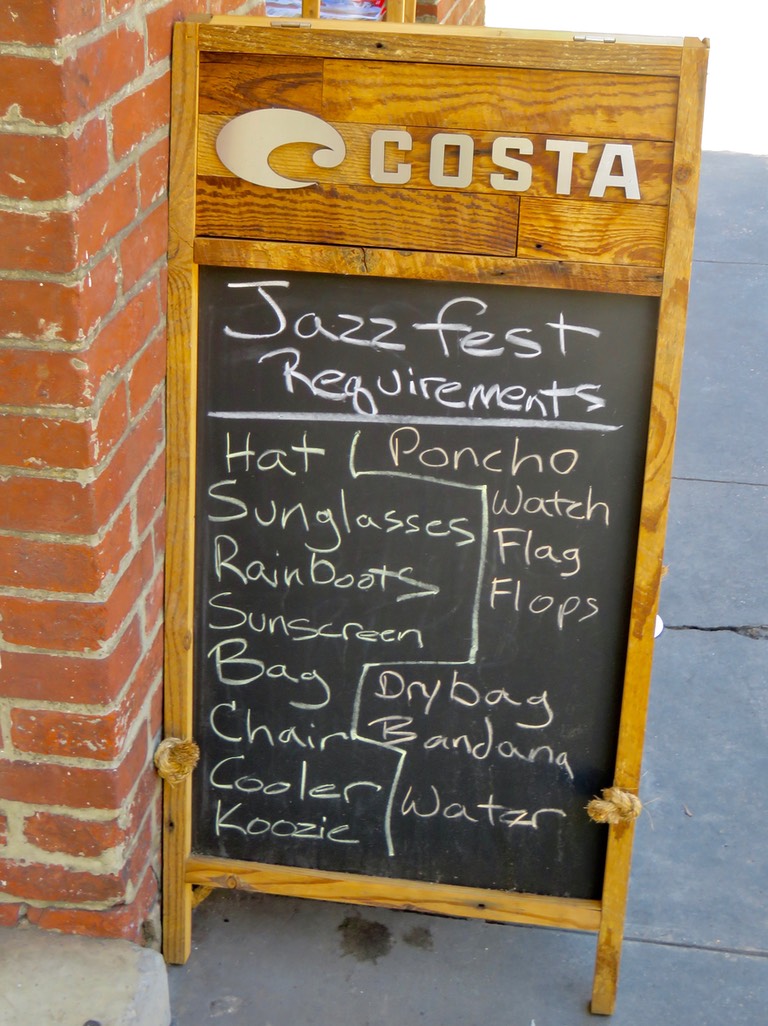 COSTA
Jazz fest
Requirements
Hat
Sunglasses
Rainboots
Sunscreen
Bag
Chair
Cooler
Koozie
Poncho
Watch
Flag
Flops
Drybag
Bandana
Water